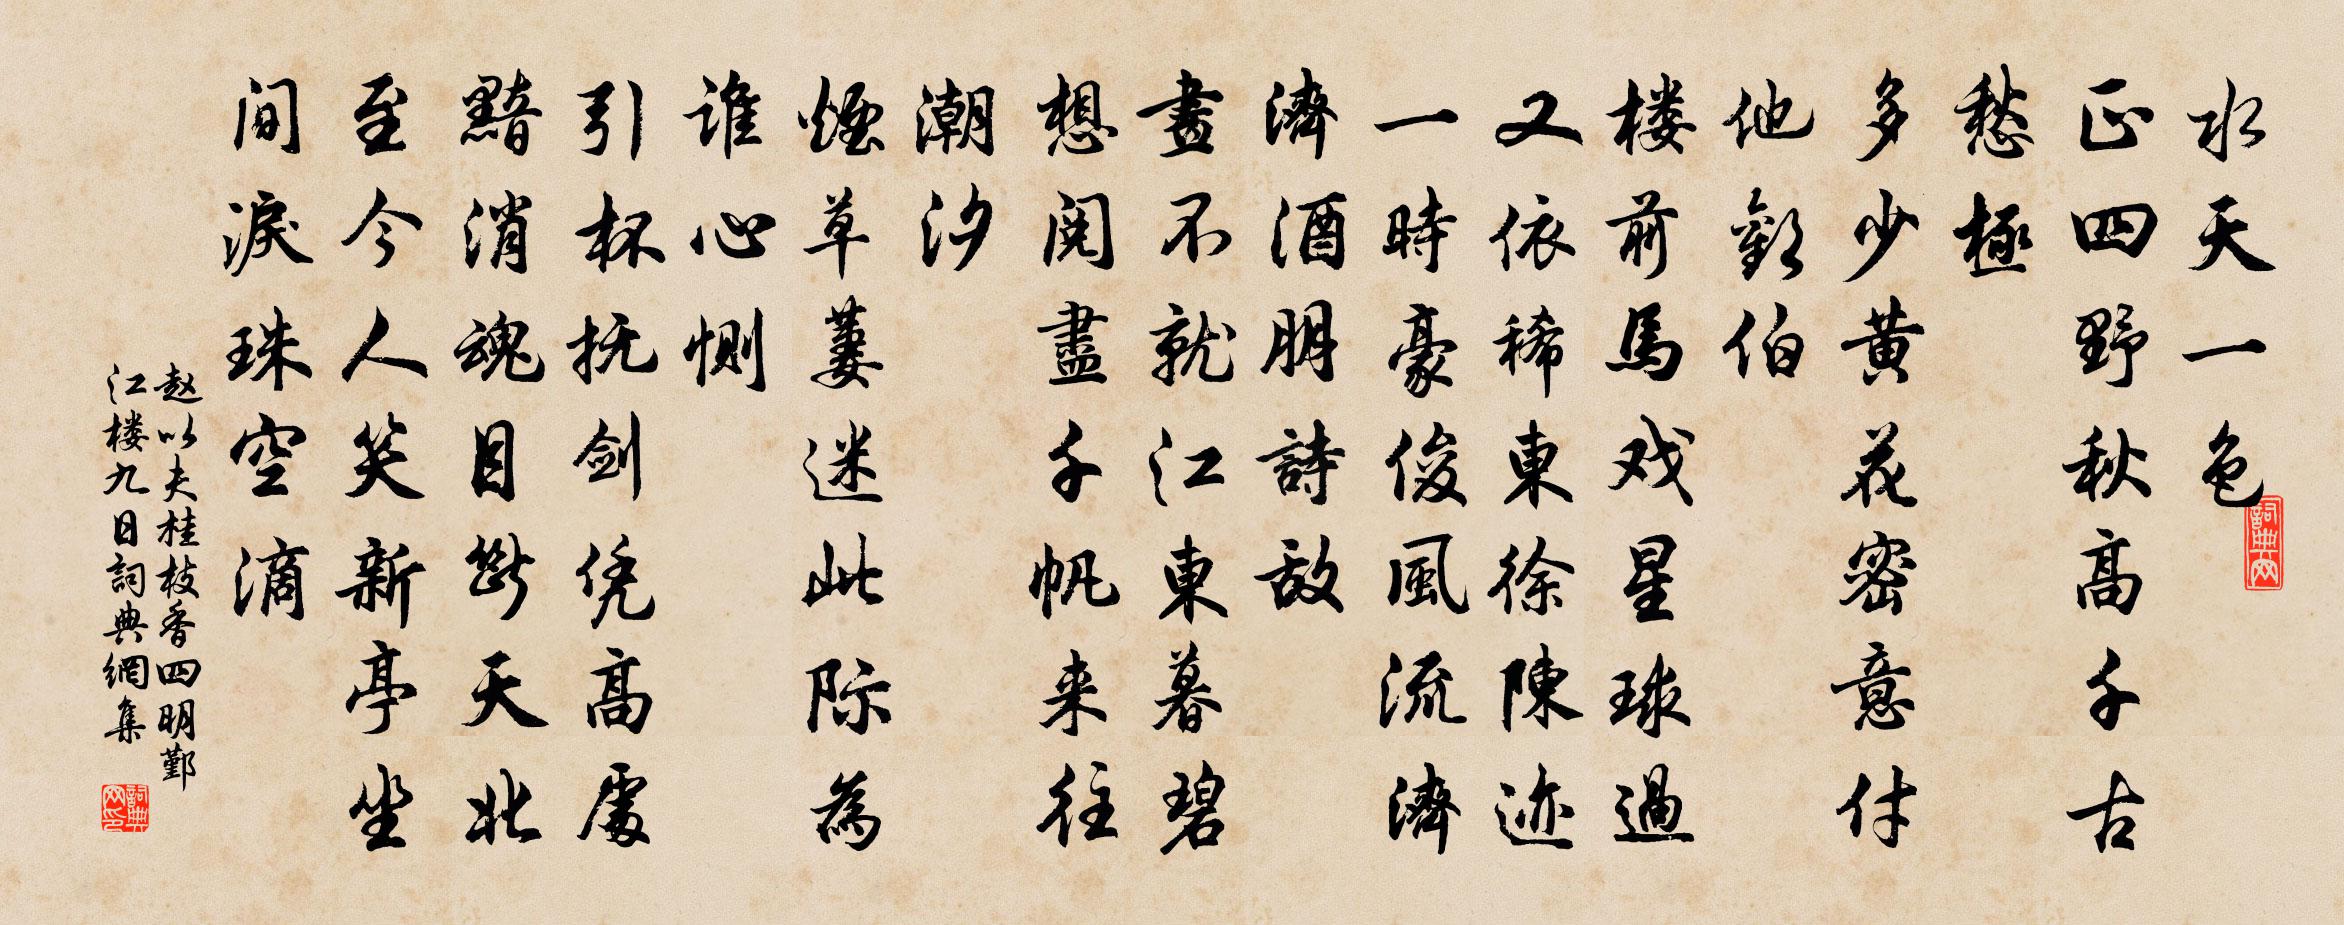 水天一色
正四野秋高千古
愁極
多少黄花密意付
他歡伯
楼前馬戏星球過
又依稀東徐陳迹
一時豪俊風流濟
濟酒朋詩敌
畫不就江東暮碧
想阅盡千帆来往
潮汐
煙草萋迷此际為
谁心恻
引杯抚剑凭高處
黯消魂目斷天北
至今人笑新亭坐
間淚珠空滴
赵以夫桂枝香四明鄞
江楼九日詞典網集
詞典网
詞典网印